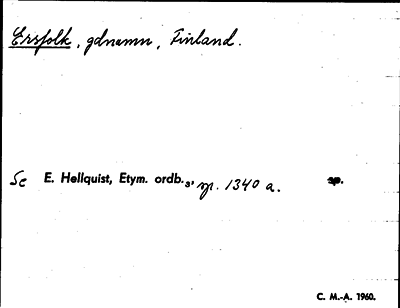 Ersfolk, gdnamn, Finland.
Se E. Hellquist, Etym. ordb.₃, sp. 1340 a. sp.
C. M.-A. 1960.